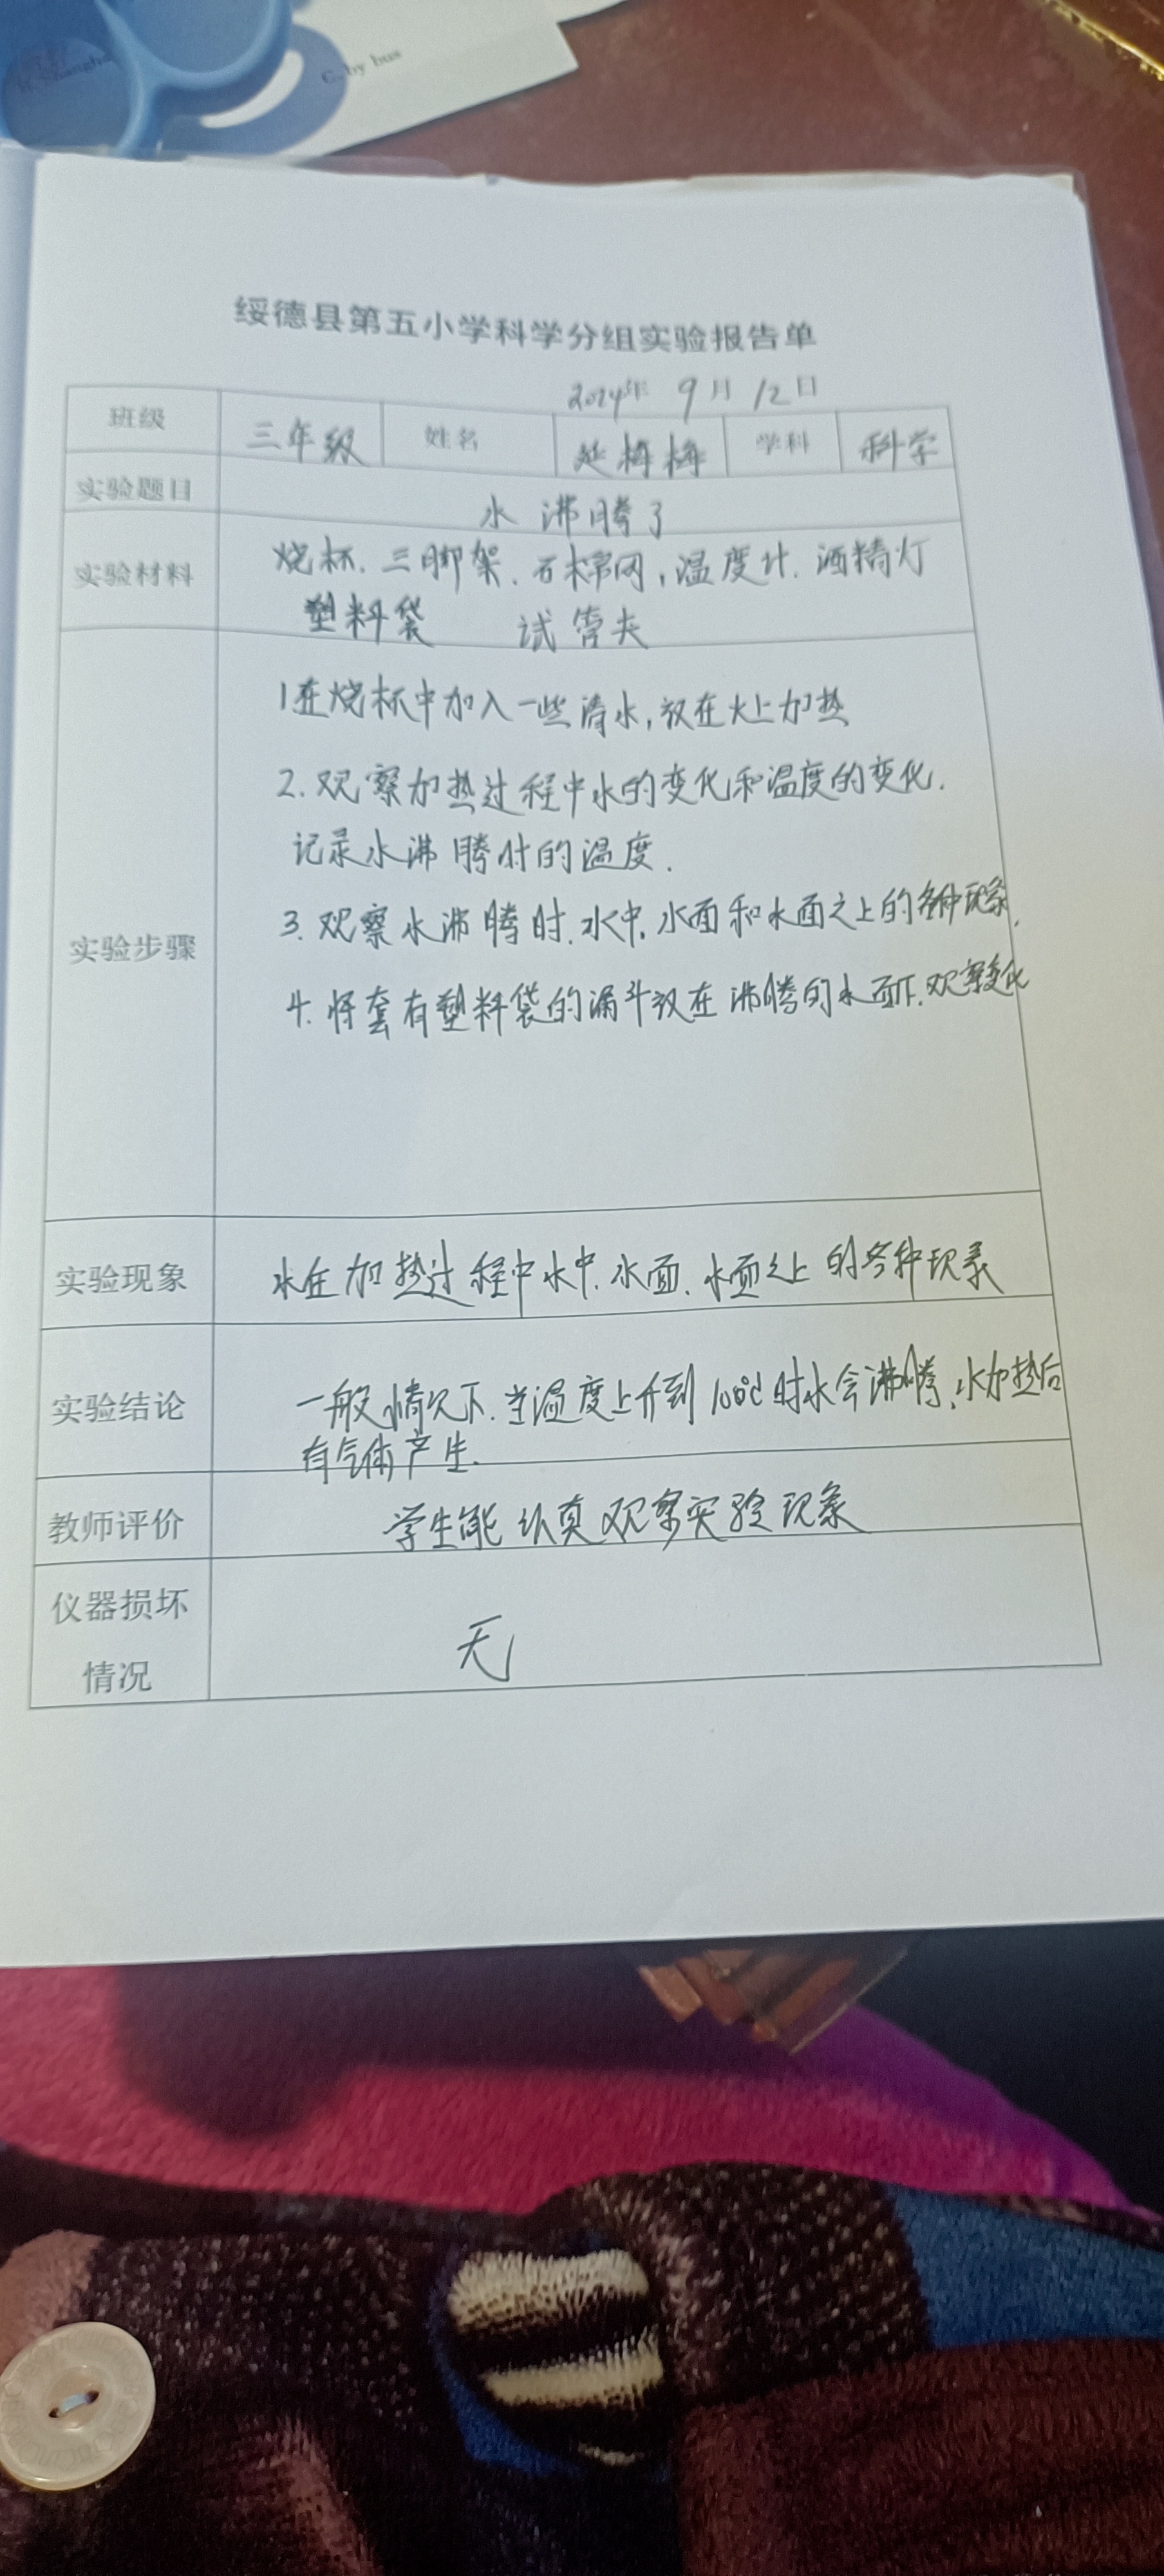 C. by bus
绥德县第五小学科学分组实验报告单
2024年 9月 12日
班级 三年级 姓名 延梅梅 学科 科学
实验题目 水沸腾了
实验材料 烧杯、三脚架、石棉网、温度计、酒精灯
塑料袋 试管夹
1在烧杯中加入一些清水,放在火上加热
2.观察加热过程中水的变化和温度的变化.
记录水沸腾时的温度.
实验步骤
3.观察水沸腾时.水中.水面和水面之上的各种现象.
4.将套有塑料袋的漏斗放在沸腾的水面下.观察变化
实验现象 水在加热过程中水中.水面.水面之上的各种现象
实验结论 一般情况下.当温度上升到100℃时水会沸腾,水加热后
有气体产生.
教师评价 学生能认真观察实验现象
仪器损坏
情况 无